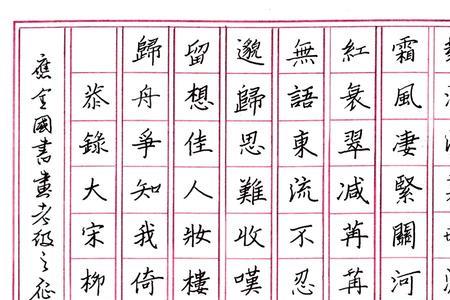 霜風淒緊關河
紅衰翠减苒苒
無語東流不忍
邈歸思難收嘆
留想佳人妝樓
歸舟爭知我倚
恭錄大宋柳
應全國書畫考級之征